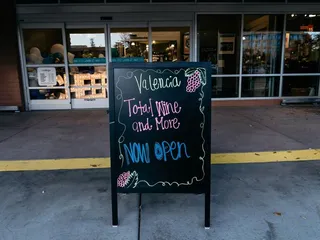 Valencia
Total Wine
and More
NOW OPEN